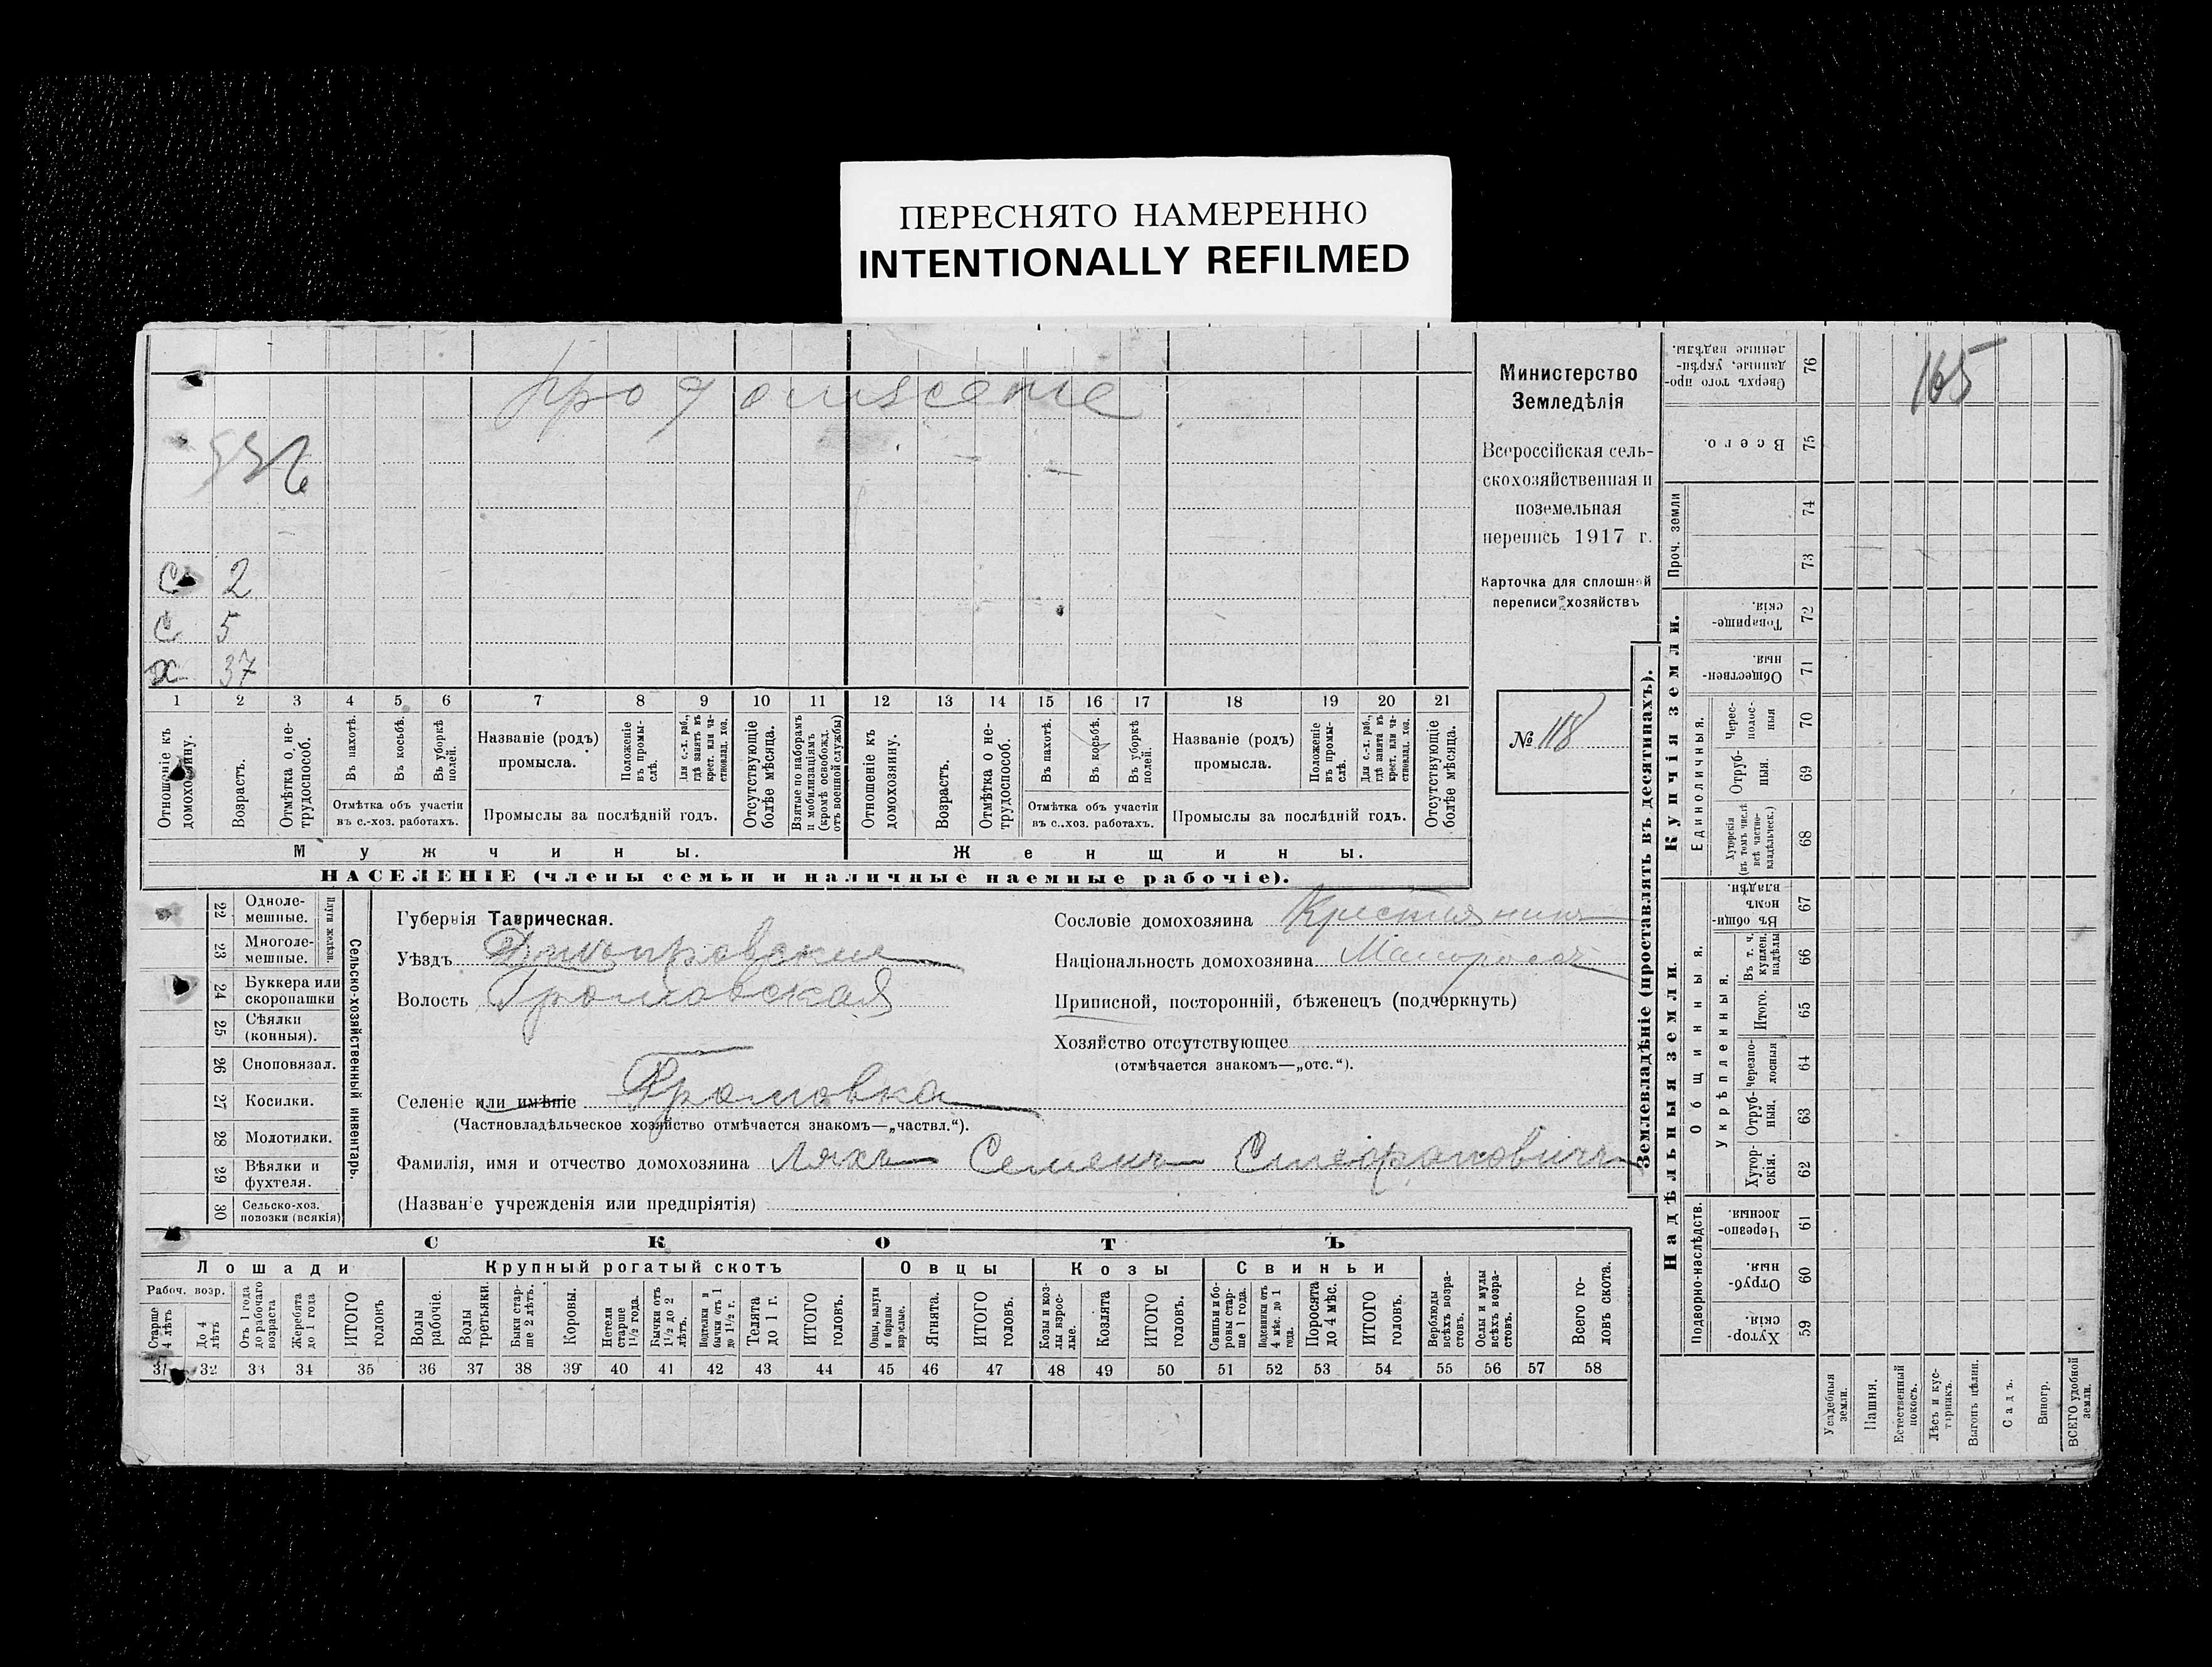 ПЕРЕСНЯТО НАМЕРЕННО
INTENTIONALLY REFILMED
продолжение
165
С 2
С 5
Х 37
1 2 3 4 5 6 7 8 9 10 11 12 13 14 15 16 17 18 19 20 21
Отношеніе къ домохозяину.
Возрастъ.
Отмѣтка о не-трудоспособ.
Въ пахотѣ.
Въ косьбѣ.
Въ уборкѣ полей.
Отмѣтка объ участіи въ с.-хоз. работахъ.
Названіе (родъ) промысла.
Положеніе въ промы-слѣ.
Для с.-х. раб., гдѣ занятъ въ крест. или ча-стновлад. хоз.
Промыслы за послѣдній годъ.
Отсутствующіе болѣе мѣсяца.
Взятые по наборамъ и мобилизаціямъ (кромѣ освобожд. отъ военной службы)
Отношеніе къ домохозяину.
Возрастъ.
Отмѣтка о не-трудоспособ.
Въ пахотѣ.
Въ косьбѣ.
Въ уборкѣ полей.
Отмѣтка объ участіи въ с.-хоз. работахъ.
Названіе (родъ) промысла.
Положеніе въ промы-слѣ.
Для с.-х. раб., гдѣ занята въ крест. или ча-стновлад. хоз.
Промыслы за послѣдній годъ.
Отсутствующіе болѣе мѣсяца.
Мужчины.
Женщины.
НАСЕЛЕНІЕ (члены семьи и наличные наемные рабочіе).
Министерство
Земледѣлія
Всероссійская сель-
скохозяйственная и
поземельная
перепись 1917 г.
Карточка для сплошной
переписи хозяйствъ
№ 118
22 Одноле-мешные.
23 Многоле-мешные.
Плуги желѣзн.
24 Буккера или скоропашки
25 Сѣялки (конныя).
26 Сноповязал.
27 Косилки.
28 Молотилки.
29 Вѣялки и фухтеля.
30 Сельско-хоз. повозки (всякія)
Сельско-хозяйственный инвентарь.
Губернія Таврическая.
Уѣздъ Днѣпровскій
Волость Громовская
Селеніе или имѣніе Громовка
(Частновладѣльческое хозяйство отмѣчается знакомъ—„частвл.“).
Фамилія, имя и отчество домохозяина Ляхъ Семенъ Стефановичъ
(Названіе учрежденія или предпріятія)
Сословіе домохозяина Крестьянинъ
Національность домохозяина Малороссъ
Приписной, посторонній, бѣженецъ (подчеркнуть)
Хозяйство отсутствующее
(отмѣчается знакомъ—„отс.“).
СКОТЪ
Лошади
Крупный рогатый скотъ
Овцы
Козы
Свиньи
Рабоч. возр.
Старше 4 лѣтъ
До 4 лѣтъ
Отъ 1 года до рабочаго возраста
Жеребята до 1 года
ИТОГО головъ
Волы рабочіе.
Волы третьяки.
Быки стар-ше 2 лѣтъ.
Коровы.
Нетели старше 1½ года.
Бычки отъ 1½ до 2 лѣтъ.
Подтелки и бычки отъ 1 до 1½ г.
Телята до 1 г.
ИТОГО головъ.
Овцы, валухи и бараны взрослые.
Ягнята.
ИТОГО головъ.
Козы и коз-лы взрос-лые.
Козлята
ИТОГО головъ.
Свиньи и бо-ровы стар-ше 1 года.
Подсвинки отъ 4 мѣс. до 1 года.
Поросята до 4 мѣс.
ИТОГО головъ.
Верблюды всѣхъ возра-стовъ.
Ослы и мулы всѣхъ возра-стовъ.
Всего го-ловъ скота.
31 32 33 34 35 36 37 38 39 40 41 42 43 44 45 46 47 48 49 50 51 52 53 54 55 56 57 58
Землевладѣніе (проставлять въ десятинахъ).
Купчія земли.
Надѣльныя земли.
Сверхъ того про-данные, укрѣп-ленные надѣлы. 76
Всего. 75
Проч. земли 74 73
Товарище-скія. 72
Обществен-ныя. 71
Единоличныя.
Черес-полос-ныя 70
Отруб-ныя. 69
Хуторскія (въ томъ числѣ всѣ частно-владѣльческ.) 68
Общинныя.
Въ общин-номъ владѣн. 67
Укрѣпленныя.
Въ т. ч. куплен. надѣлы 66
Итого. 65
Черезпо-лосныя 64
Отруб-ныя. 63
Хутор-скія. 62
Подворно-наслѣдств.
Черезпо-лосныя. 61
Отруб-ныя. 60
Хутор-скія. 59
Усадебныя земли.
Пашня.
Естественный покосъ.
Лѣсъ и кус-тарникъ.
Выгонъ цѣлин.
Садъ.
Виногр.
ВСЕГО удобной земли.